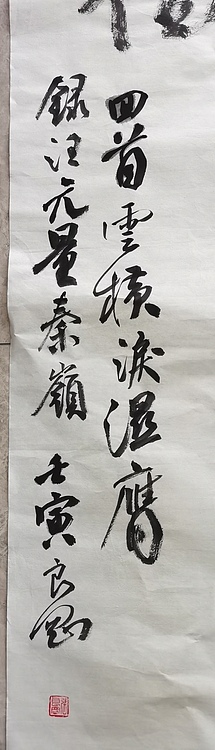 四首雲横淚濕膺
録汪元量秦嶺 壬寅良勛